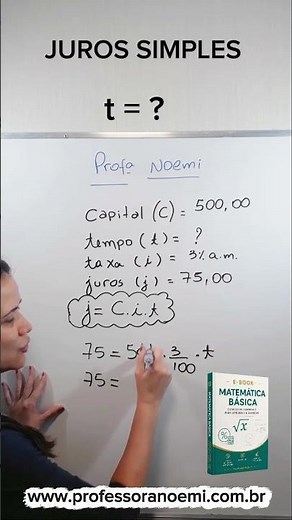 JUROS SIMPLES
t = ?
Profa Noemi
Capital (C) = 500,00
tempo (t) = ?
taxa (i) = 3% a.m.
juros (j) = 75,00
j = C.i.t
75 = 50 . 3/100 . t
75 =
E-BOOK
MATEMÁTICA
BÁSICA
√x
www.professoranoemi.com.br